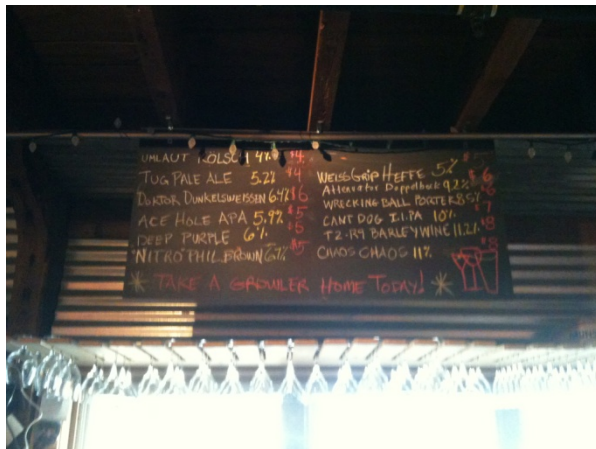 UMLAUT KOLSCH 4% $4
TUG PALE ALE 5.2% $4
DOKTOR DUNKELSWEISSEN 6.4% $6
ACE HOLE APA 5.9% $5
DEEP PURPLE 6% $5
NITRO PHIL BROWN 6.7% $5
WELSGRIP HEFFE 5%
Alterator Doppelbock 9.2% $6
WRECKING BALL PORTER 8.5%
CANT DOG I.I.PA 10%
T2-R9 BARLEYWINE 11.2%
CHAOS CHAOS 11% $8
TAKE A GROWLER HOME TODAY!